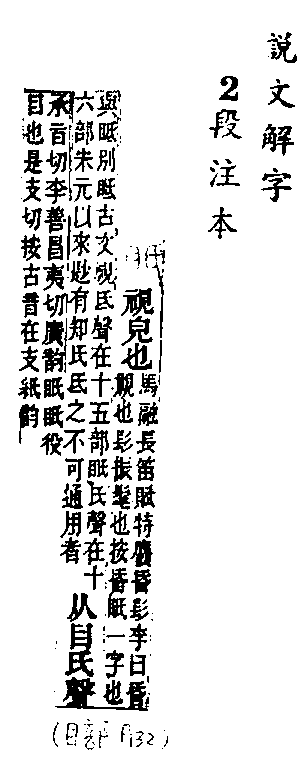 説文解字
2段注本
視皃也
馬融長笛賦特麚昏髟李曰昏
視也髟振髦也按昏眂一字也
與眡別眡古文視氐聲在十五部眂氏聲在十
六部宋元以來尟有知氏氐之不可通用者
从目氏聲
承旨切李善昌夷切廣韵眂眂役
目也是支切按古音在支紙韵
(目部 P132)